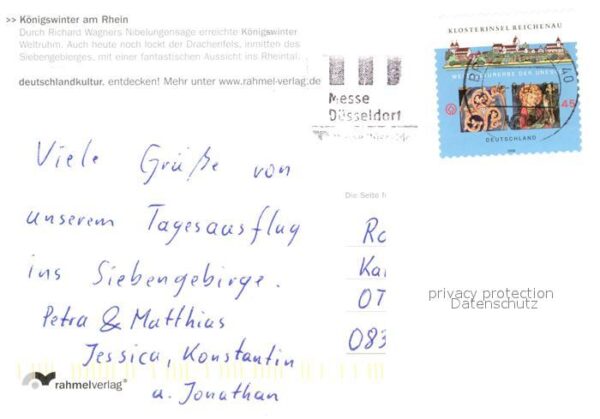 >> Königswinter am Rhein
Durch Richard Wagners Nibelungensage erreichte Königswinter
Weltruhm. Auch heute noch lockt der Drachenfels, inmitten des
Siebengebirges, mit einer fantastischen Aussicht ins Rheintal.
deutschlandkultur. entdecken! Mehr unter www.rahmel-verlag.de
Messe
Düsseldorf
KLOSTERINSEL REICHENAU
45
DEUTSCHLAND
Viele Grüße von
unserem Tagesausflug
ins Siebengebirge.
Petra & Matthias
Jessica, Konstantin
u. Jonathan
Die Seite f
Ro
Kar
07
083
privacy protection
Datenschutz
rahmelverlag®